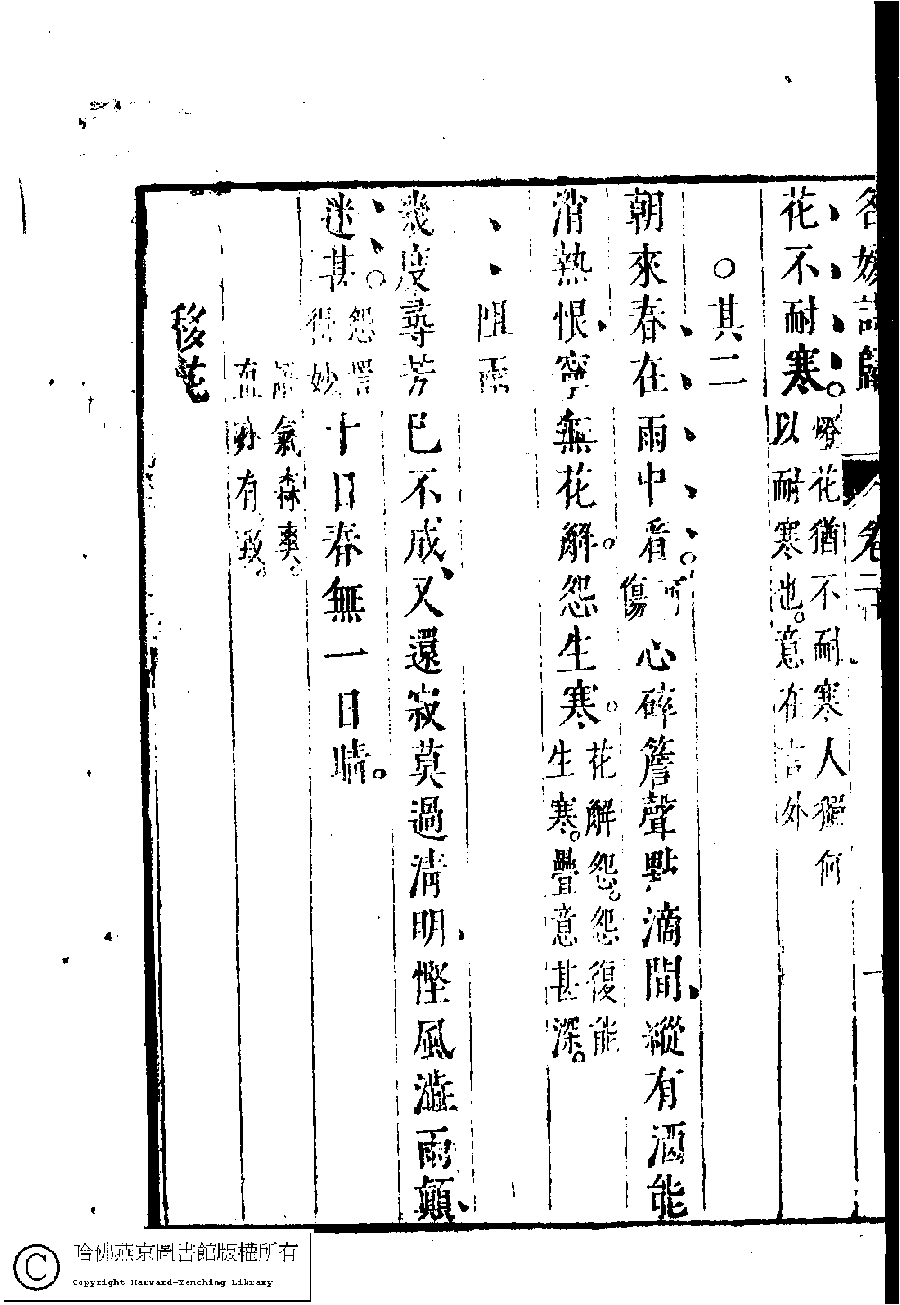 名媛詩歸 卷二十
花不耐寒
燈花猶不耐寒人獨何
以耐寒也。意在言外
○其二
朝來春在雨中看。
可
傷
心碎簷聲點滴間縱有酒能
消熱恨寧無花解怨生寒。
花解怨。怨復能
生寒。疊意甚深。
阻雨
幾度尋芳已不成、又還寂莫過清明、慳風澁雨顛
迷甚。
怨詈
得妙
十日春無一日晴。
氣森爽。
有致。
移花
哈佛燕京圖書館版權所有
Copyright Harvard-Yenching Library